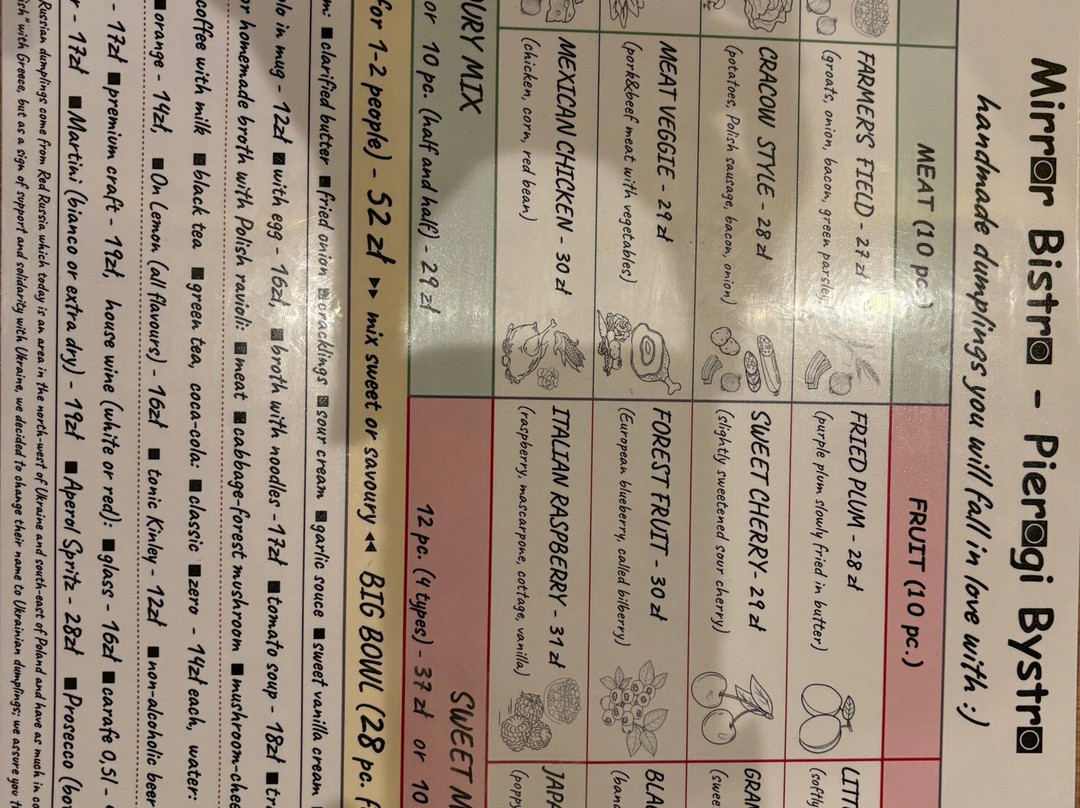 Mirror Bistro - Pierogi Bystro
handmade dumplings you will fall in love with :)
MEAT (10 pc.)
FRUIT (10 pc.)
FARMER'S FIELD - 27 zł
(groats, onion, bacon, green parsley)
FRIED PLUM - 28 zł
(purple plum slowly fried in butter)
CRACOW STYLE - 28 zł
(potatoes, Polish sausage, bacon, onion)
SWEET CHERRY - 29 zł
(slightly sweetened sour cherry)
MEAT VEGGIE - 29 zł
(pork&beef meat with vegetables)
FOREST FRUIT - 30 zł
(European blueberry, called bilberry)
MEXICAN CHICKEN - 30 zł
(chicken, corn, red bean)
ITALIAN RASPBERRY - 31 zł
(raspberry, mascarpone, cottage, vanilla)
MIX
SWEET
or 10 pc. (half and half) - 29 zł
12 pc. (4 types) - 37 zł or 10
for 1-2 people) - 52 zł ▸▸ mix sweet or savoury ◂◂ BIG BOWL (28 pc.
■ clarified butter ■ fried onion ■ cracklings ■ sour cream ■ garlic souce ■ sweet vanilla cream
in mug - 12zł ■ with egg - 16zł, ■ broth with noodles - 17zł ■ tomato soup - 18zł
homemade broth with Polish ravioli: ■ meat ■ cabbage-forest mushroom ■
coffee with milk ■ black tea ■ green tea, coca-cola: ■ classic ■ zero - 14zł each, water:
■ orange - 14zł, ■ On Lemon (all flavours) - 16zł ■ tonic Kinley - 12zł ■ non-alcoholic beer
- 17zł ■ premium craft - 19zł, house wine (white or red): ■ glass - 16zł ■ carafe 0,5l -
- 17zł ■ Martini (bianco or extra dry) - 19zł ■ Aperol Spritz - 28zł ■ Prosecco
Russian dumplings come from Red Russia which today is an area in the north-west of Ukraine and south-east of Poland and have as much in
with Greece, but as a sign of support and solidarity with Ukraine, we decided to change their name to Ukrainian dumplings; we assure you